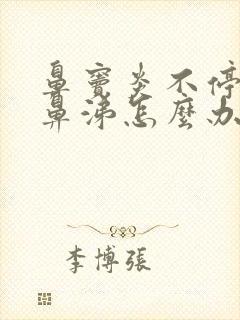 鼻竇炎不停
鼻涕怎麼办
李博張